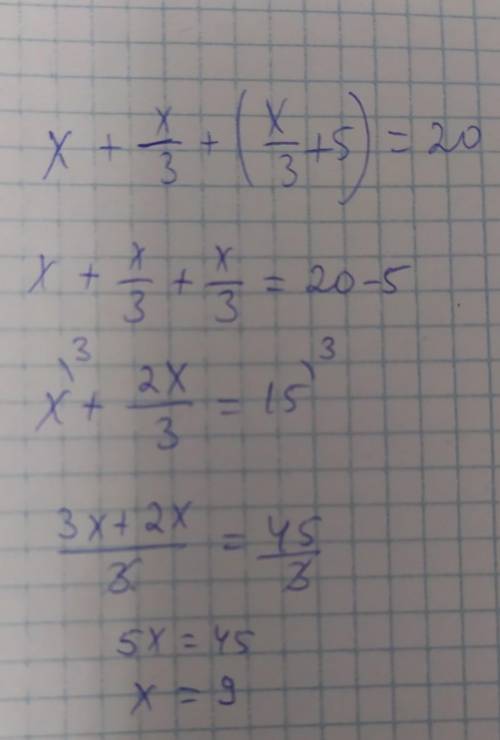 x + x/3 + (x/3 + 5) = 20
x + x/3 + x/3 = 20 - 5
x^{\3} + 2x/3 = 15^{\3}
3x + 2x/3 = 45/3
5x = 45
x = 9